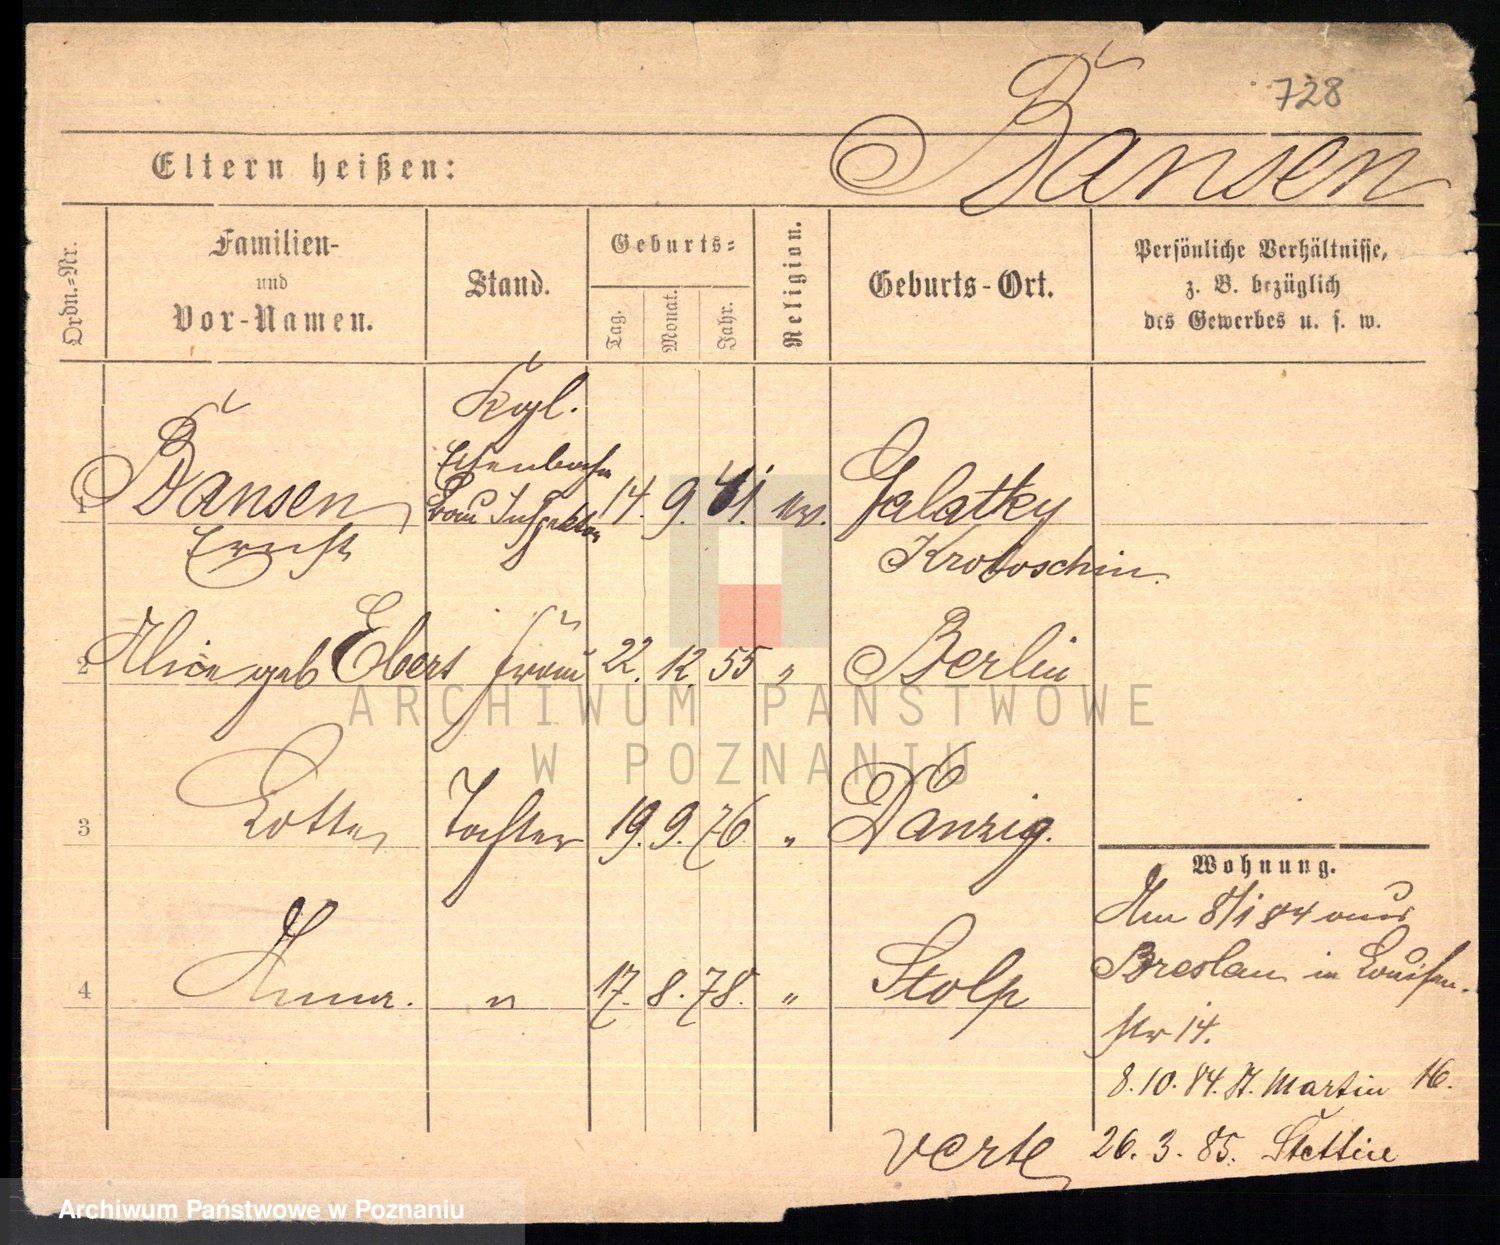 728
Bansen
Eltern heißen:
Ordn.-Nr.
Familien-
und
Vor-Namen.
Stand.
Geburts-
Tag.
Monat.
Jahr.
Religion.
Geburts-Ort.
Persönliche Verhältnisse,
z. B. bezüglich
des Gewerbes u. s. w.
Kgl.
Eisenbahn
1 Bansen Bau Inspektor 14. 9. 41. ev. Galatky
Ernst Krotoschin
2 Alice geb Ebert Frau 22. 12. 55 " Berlin
ARCHIWUM PAŃSTWOWE
W POZNANIU
3 Lotte Tochter 19. 9. 76. " Danzig.
Wohnung.
Am 8/1 84 aus
Breslau in Louisen-
4 Anna. " 17. 8. 78. " Stolp
str 14.
8. 10. 84. St. Martin 16.
verte 26. 3. 85. Stettin
Archiwum Państwowe w Poznaniu